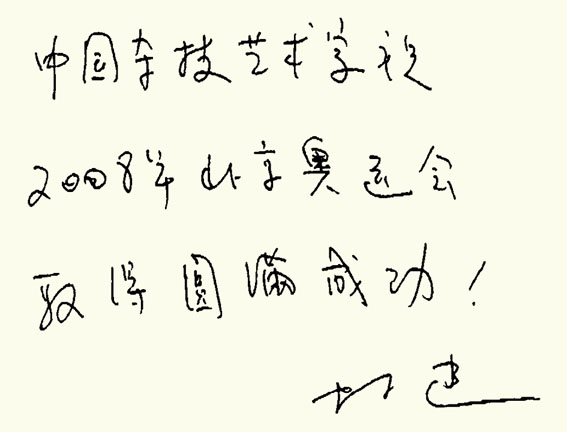 中国杂技艺术学祝
2008年北京奥运会
取得圆满成功！